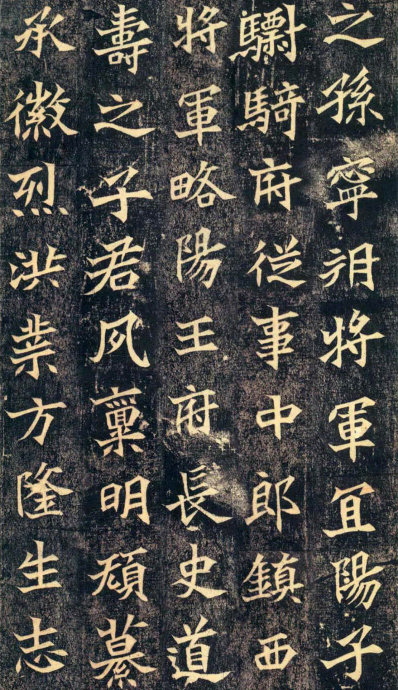 之孫寧朔將軍冝陽子
驃騎府從事中郎鎮西
將軍略陽王府長史道
壽之子君夙稟明頴纂
承徽烈洪業方隆生志